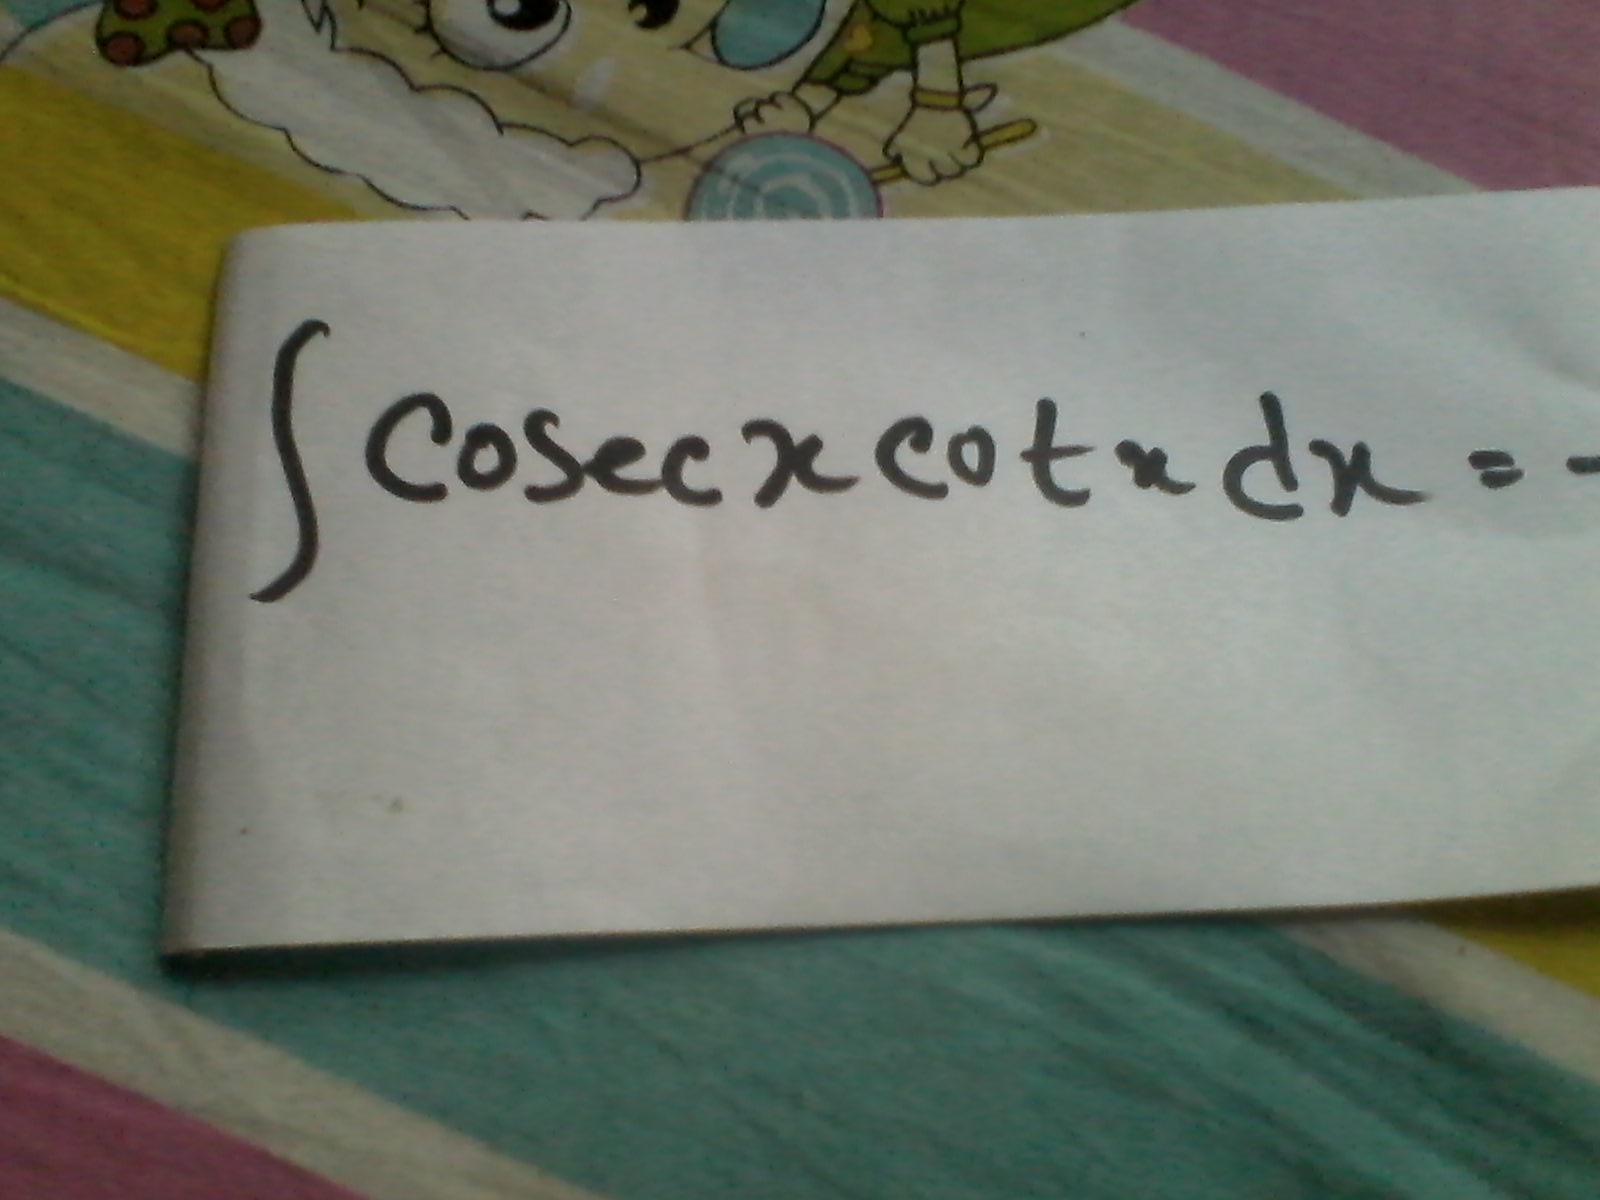 ∫ cosec x cot x dx = -